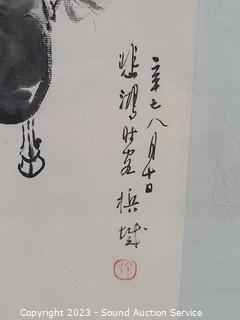 辛巳八月十日
悲鴻時客梹城
徐
Copyright 2023 - Sound Auction Service